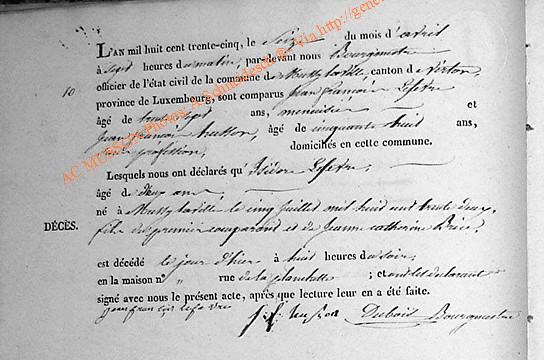 L'AN mil huit cent trente-cinq, le Seize du mois d'avril
à Sept heures du matin, pardevant nous Bourgmestre
officier de l'état civil de la commune de Mussy la ville, canton de Virton,
10
province de Luxembourg, sont comparus Jean françois Lefevre
âgé de trente sept ans, menuisier et
Jean françois husson, âgé de cinquante huit ans,
profession, domiciliés en cette commune.
Lesquels nous ont déclarés qu'Isidore Lefevre,
âgé de deux ans,
né à Mussy laville le cinq Juillet mil huit cent trente deux,
DÉCÈS.
fils du premier comparant et de Jeanne catherine
est décédé le jour d'hier à huit heures du soir,
en la maison n° " rue de la planchette ; et ont les déclarants
signé avec nous le présent acte, après que lecture leur en a été faite.
jean francois lefevre j. f. husson Dubois Bourgmestre
AC MUSSON Photos A. Schindfessel ® Via http://gene